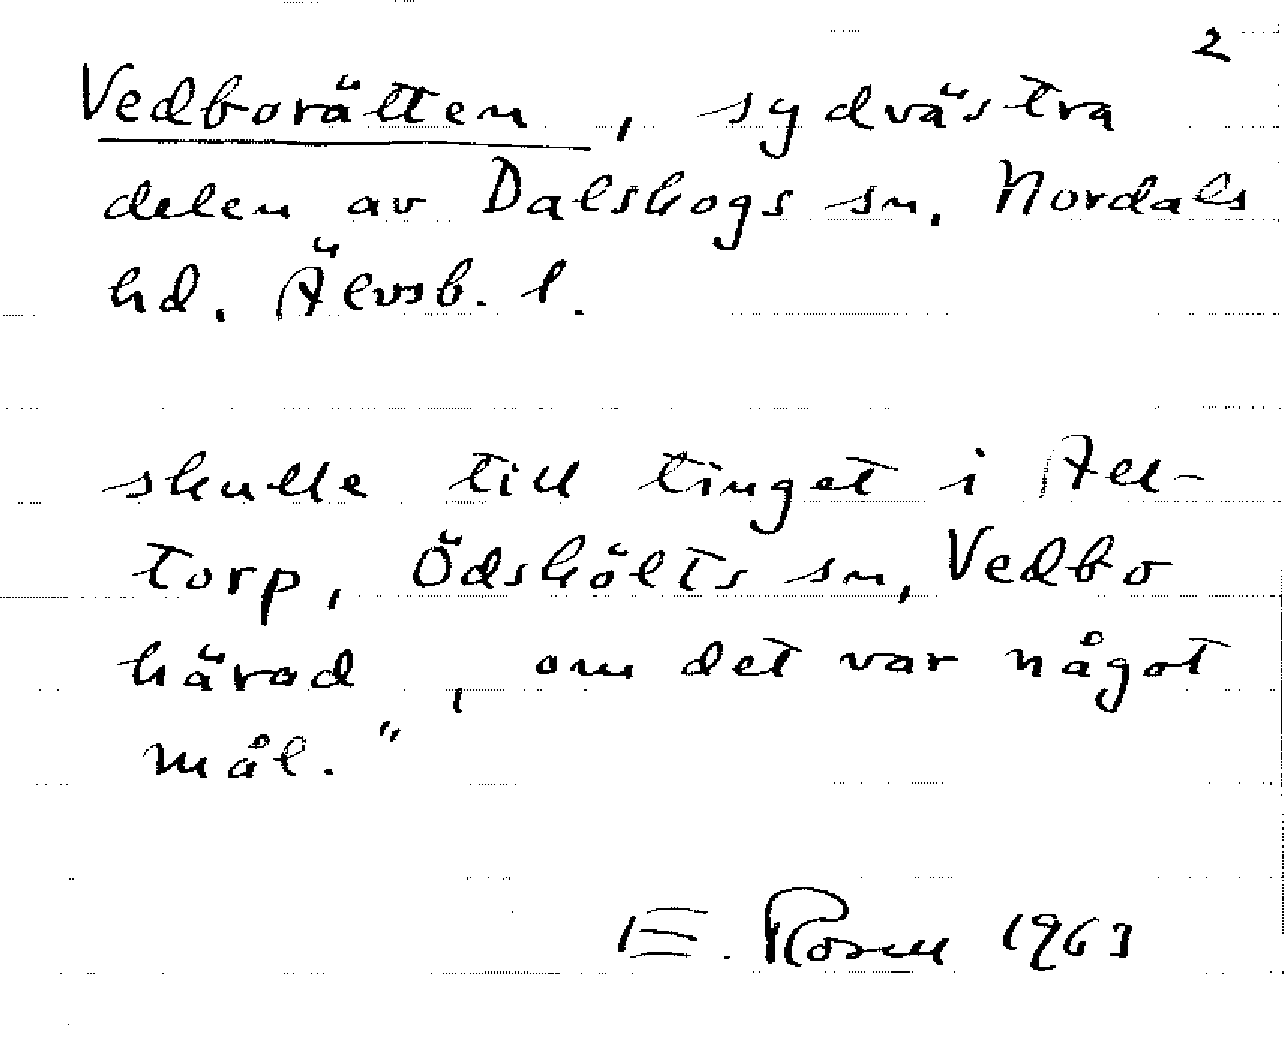 2
Vedborätten, sydvästra
delen av Dalskogs sn. Nordals
hd. Älvsb. l.
skulle till tinget i All-
torp, Ödskölts sn, Vedbo
härad, om det var något
mål."
E. Rosell 1963